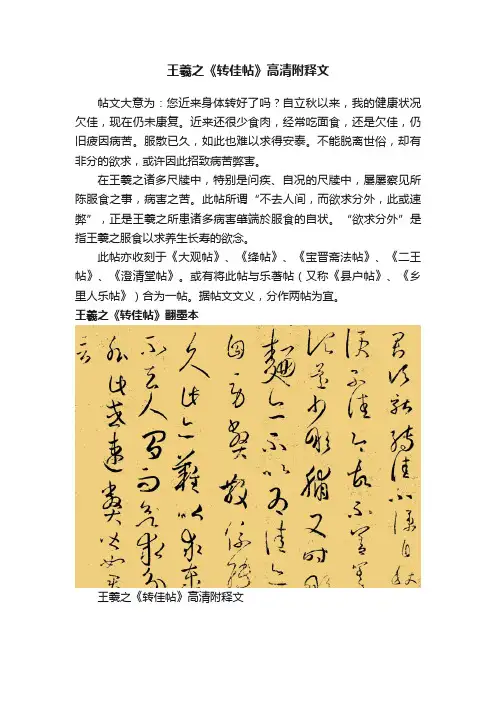 王羲之《转佳帖》高清附释文
帖文大意为：您近来身体转好了吗？自立秋以来，我的健康状况
欠佳，现在仍未康复。近来还很少食肉，经常吃面食，还是欠佳，仍
旧疲因病苦。服散已久，如此也难以求得安泰。不能脱离世俗，却有
非分的欲求，或许因此招致病苦弊害。
在王羲之诸多尺牍中，特别是问疾、自况的尺牍中，屡屡察见所
陈服食之事，病害之苦。此帖所谓“不去人间，而欲求分外，此或速
弊”，正是王羲之所患诸多病害肇端於服食的自状。“欲求分外”是
指王羲之服食以求养生长寿的欲念。
此帖亦收刻于《大观帖》、《绛帖》、《宝晋斋法帖》、《二王
帖》、《澄清堂帖》。或有将此帖与乐著帖（又称《县户帖》、《乡
里人乐帖》）合为一帖。据帖文文义，分作两帖为宜。
王羲之《转佳帖》翻墨本
君頃就轉佳不僕自秋
便不佳今故不善差
頃還少噉脯又時噉
麵亦不以為佳亦
自勞弊散係轉
久此亦難以求泰
不去人間而欲求分
外此或速弊皆如君
言
王羲之《转佳帖》高清附释文